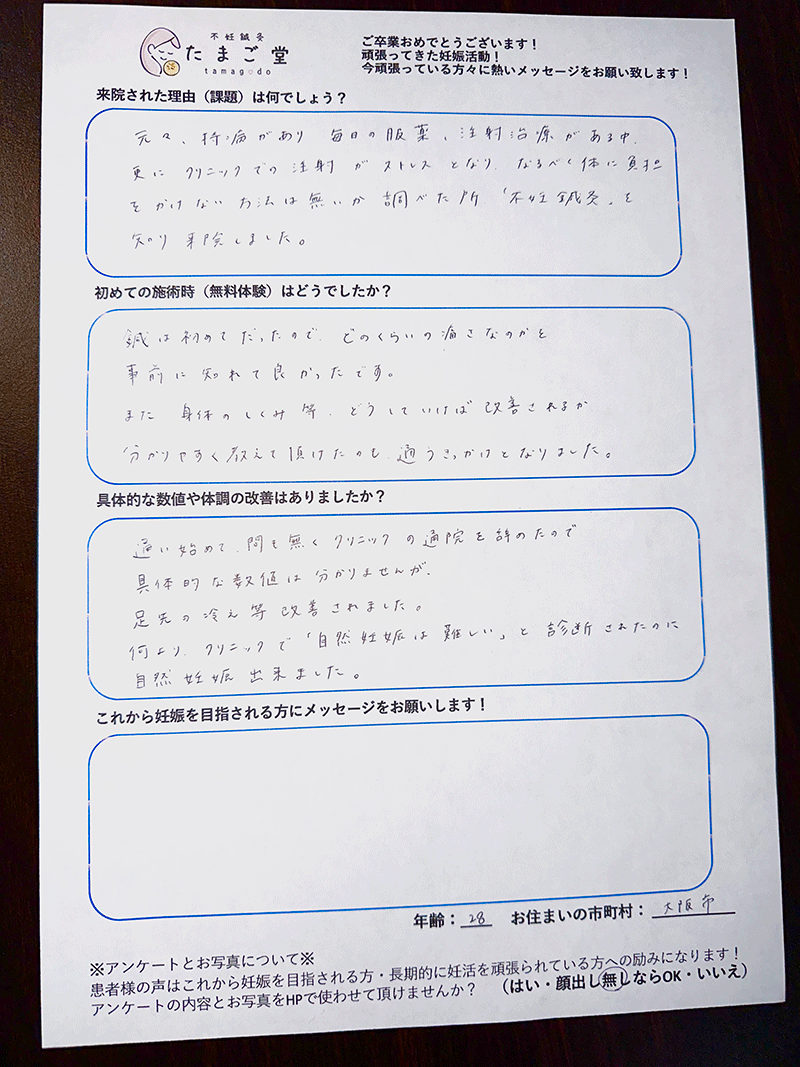 不妊鍼灸
たまご堂
tamagodo
ご卒業おめでとうございます！
頑張ってきた妊娠活動！
今頑張っている方々に熱いメッセージをお願い致します！
来院された理由（課題）は何でしょう？
元々、持病があり 毎日の服薬、注射治療がある中、
更に クリニックでの 注射 が ストレス となり、なるべく体に負担
をかけない方法は無いか調べた所「不妊鍼灸」を
知り来院しました。
初めての施術時（無料体験）はどうでしたか？
鍼は初めてだったので、どのくらいの痛さなのかを
事前に知れて良かったです。
また 身体のしくみ等、どうしていけば改善されるか
分かりやすく教えて頂けたのも、通うきっかけとなりました。
具体的な数値や体調の改善はありましたか？
通い始めて、間も無くクリニックの通院を辞めたので
具体的な数値は分かりませんが、
足先の冷え等改善されました。
何より、クリニックで「自然妊娠は難しい」と診断されたのに
自然妊娠出来ました。
これから妊娠を目指される方にメッセージをお願いします！
年齢：28 お住まいの市町村：大阪市
※アンケートとお写真について※
患者様の声はこれから妊娠を目指される方・長期的に妊活を頑張られている方への励みになります！
アンケートの内容とお写真をHPで使わせて頂けませんか？ （はい・顔出し無しならOK・いいえ）